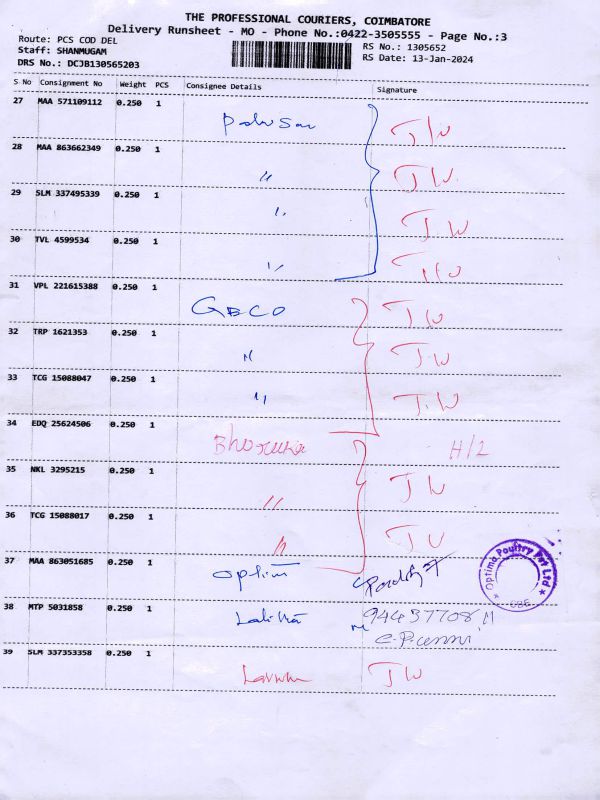 THE PROFESSIONAL COURIERS, COIMBATORE
Delivery Runsheet - MO - Phone No.:0422-3505555 - Page No.:3
Route: PCS COD DEL
RS No.: 1305652
Staff: SHANMUGAM
RS Date: 13-Jan-2024
DRS No.: DCJB130565203
S No Consignment No Weight PCS Consignee Details Signature
27 MAA 571109112 0.250 1
28 MAA 863662349 0.250 1 " T W
29 SLM 337495339 0.250 1 " T. W
30 TVL 4599534 0.250 1 "
31 VPL 221615388 0.250 1 GBCO T W
32 TRP 1621353 0.250 1 " T.W
33 TCG 15088047 0.250 1 " T.W
34 EDQ 25624506 0.250 1 Bhoruka H/2
35 NKL 3295215 0.250 1 " T W
36 TCG 15088017 0.250 1 "
37 MAA 863051685 0.250 1 Optim
Optima Poultry Pvt Ltd
CBE
38 MTP 5031858 0.250 1 Lalitha
39 SLM 337353358 0.250 1 T W